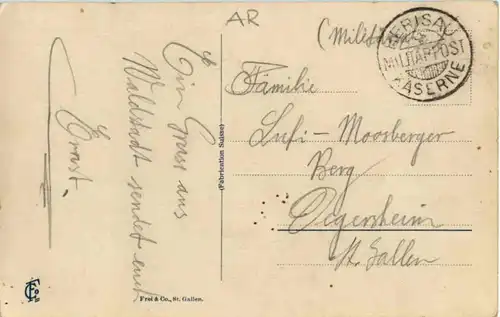 AR
(Militär
HERISAU
MILITÄRPOST
KASERNE
Ein Gruss aus
Waldstadt sendet euch
Ernst.
(Fabrication Suisse)
Familie
Moosberger
Berg
Degersheim
St. Gallen
Frei & Co., St. Gallen.